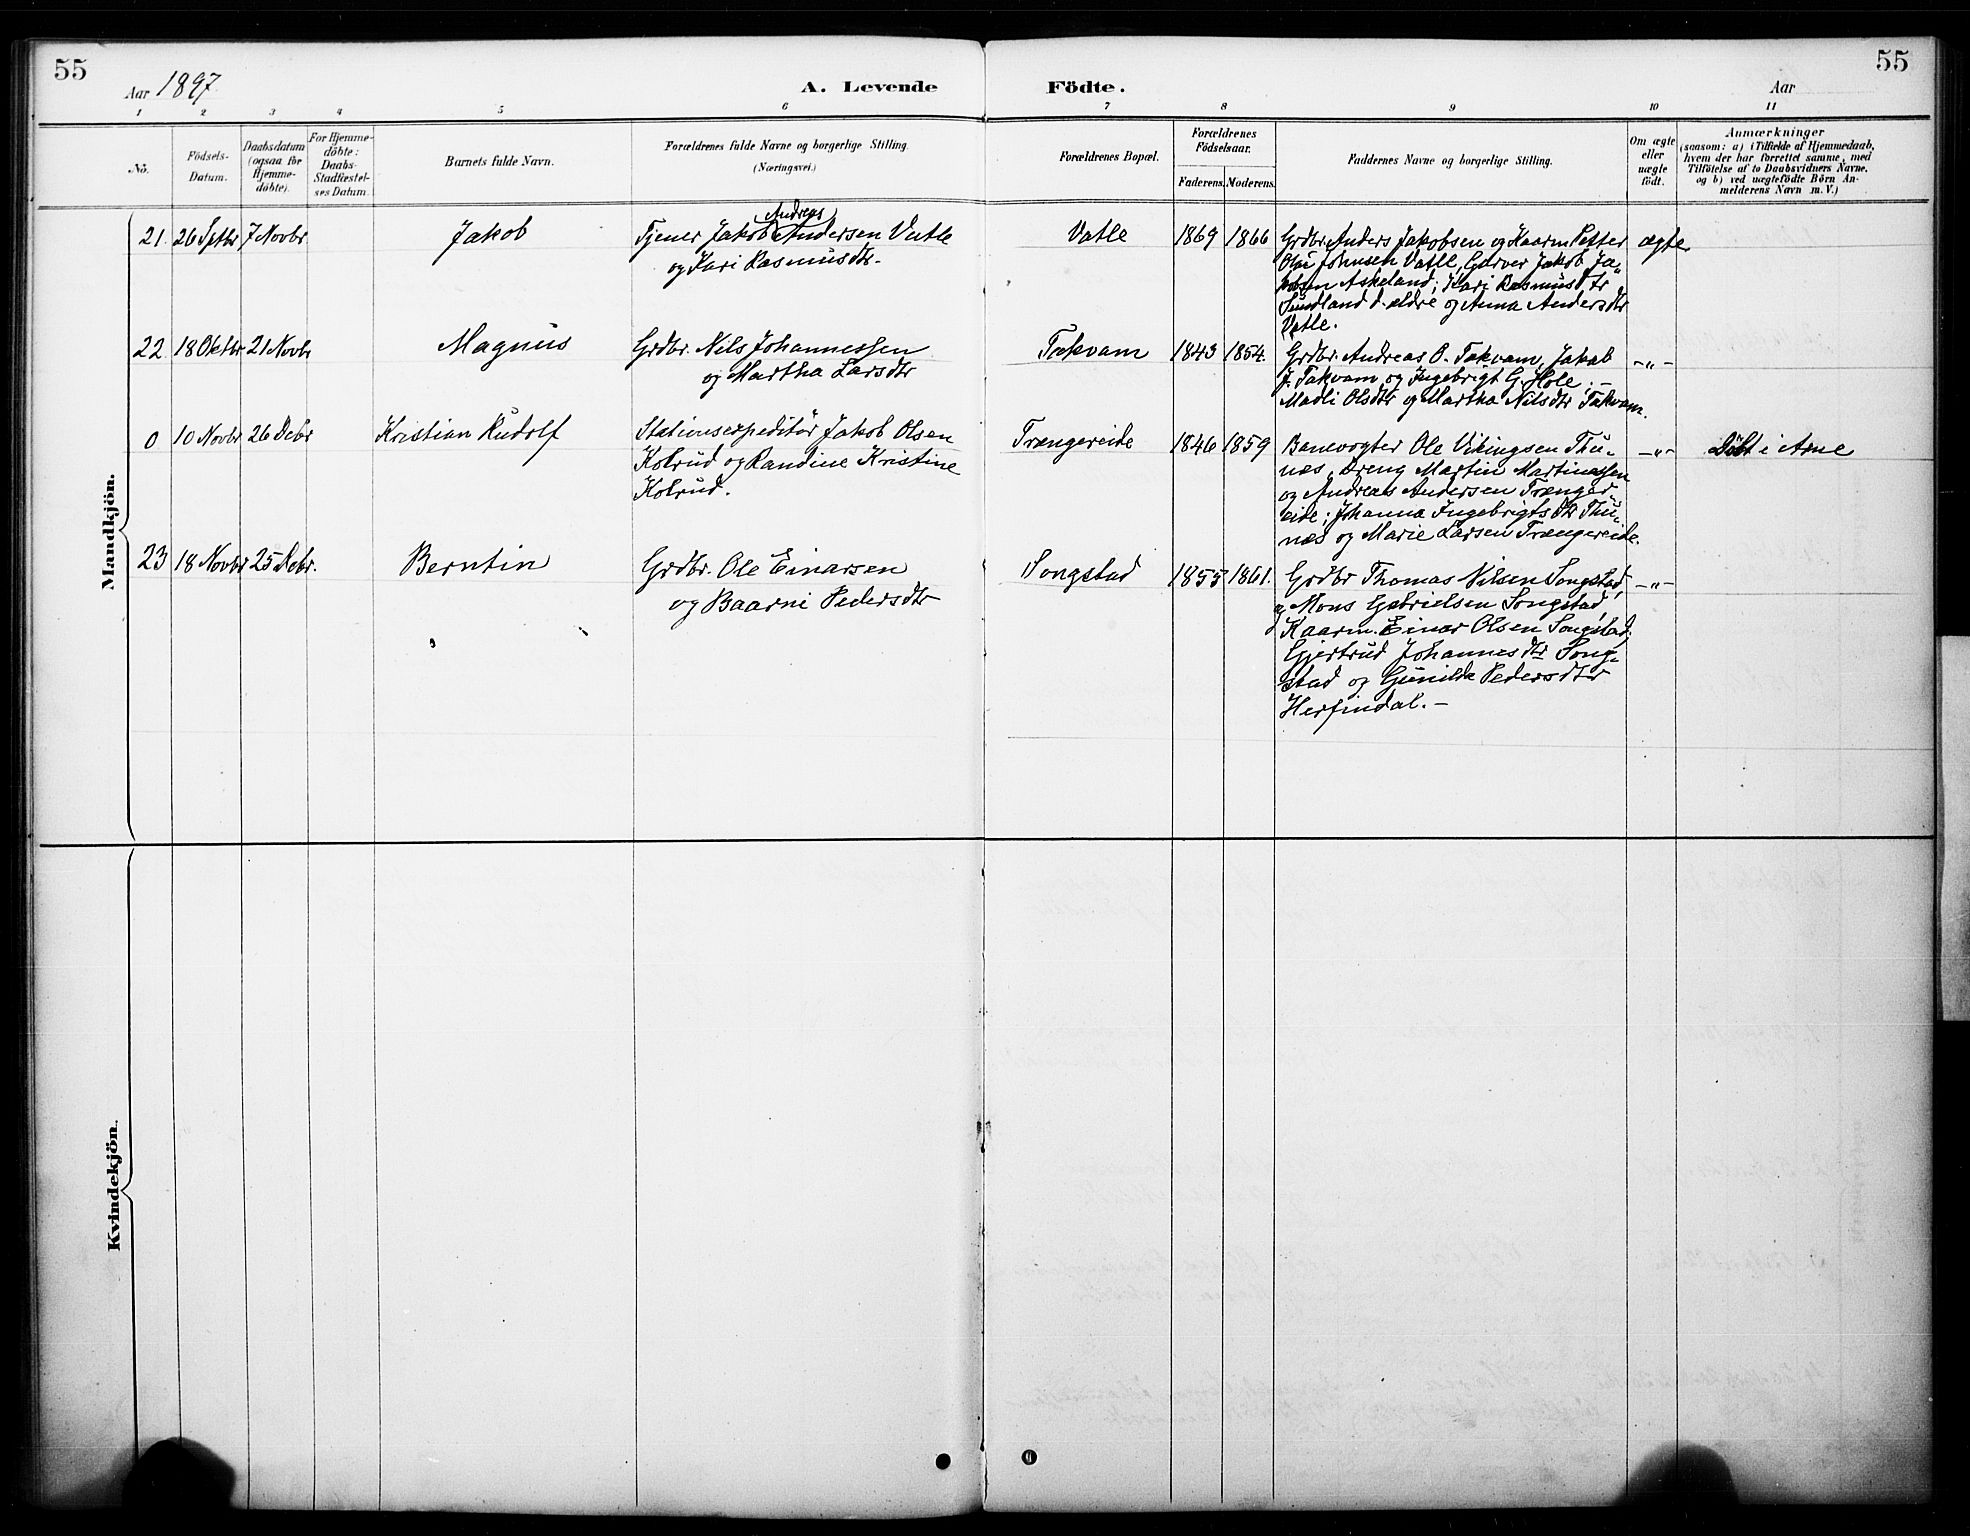 55
Aar 1897.
A. Levende Födte.
Aar
55
1 2 3 4 5 6 7 8 9 10 11
No.
Födsels-
Datum.
Daabsdatum
(ogsaa for
Hjemme-
döbte).
For Hjemme-
döbte:
Daabs-
Stadfæstel-
ses Datum.
Barnets fulde Navn.
Forældrenes fulde Navne og borgerlige Stilling.
(Næringsvei.)
Forældrenes Bopæl.
Forældrenes
Födselsaar.
Faderens. Moderens.
Faddernes Navne og borgerlige Stilling.
Om ægte
eller
uægte
födt.
Anmærkninger
(saasom: a) i Tilfælde af Hjemmedaab,
hvem der har forrettet samme, med
Tilföielse af to Daabsvidners Navne,
og b) ved uægtefödte Börn An-
melderens Navn m. V.)
Mandkjön.
21. 26 Septbr 7 Novbr
Jakob
Andreas
Tjener Jakob Andersen Vatle
og Kari Rasmusdtr.
Vatle
1869 1866
Grdbr. Anders Jakobsen og Kaarm. Petter
Olai Johnsen Vatle, Garver Jakob Ja-
kobsen Askeland; Kari Rasmusdtr
Sundland d. ældre og Anna Andersdtr
Vatle.
ægte
22. 18 Oktbr 21 Novbr
Magnus
Grdbr. Nils Johannessen
og Martha Larsdtr
Takvam
1843 1854.
Grdbr. Andreas O. Takvam, Jakob
J. Takvam og Ingebrigt G. Hole; –
Madli Olsdtr og Martha Nilsdtr Takvam.
–„–
0 10 Novbr 26 Decbr
Kristian Rudolf
Stationsexpeditör Jakob Olsen
Kolrud og Randine Kristine
Kolrud.
Trængereide
1846 1859
Banevogter Ole Vikingsen Thu-
næs, Dreng Martin Martinessen
og Andreas Andersen Trænger-
eide; Johanna Ingebrigtsdtr Thu-
næs og Marie Larsen Trængereide.
–„–
Döbt i Arne
23 18 Novbr 25 Decbr.
Berntin
Grdbr. Ole Einarsen
og Baarni Pedersdtr
Songstad
1855 1861.
Grdbr Thomas Nilsen Songstad,
og Mons Gabrielsen Songstad,
Kaarm. Einar Olsen Songstad;
Gjertrud Johannesdtr Song-
stad og Gunilda Pedersdtr
Herfindal. –
–„–
Kvindekjön.